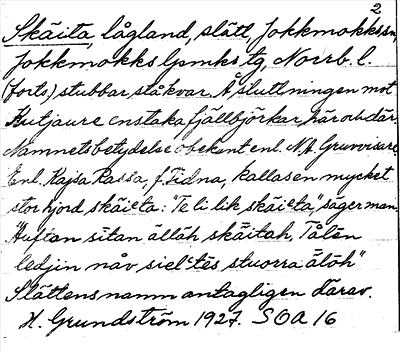 2
Skäita, lågland, slätt, Jokkmokks sn,
Jokkmokks lpmks tg, Norrb. l.
(forts.) stubbar stå kvar. Å sluttningen mot
Kutjaure enstaka fjällbjörkar här och där.
Namnets betydelse obekant enl. N.A. Gruvvisare.
Enl. Kajsa Rassa, f. Tidna, kallas en mycket
stor hjord skäiᵉta: "Te li lik skäiᵉta," säger man.
"Auftan sitan älläh skäitah, Tålen
ledjin nåv sielᵉtes stuorra älöh"
Slättens namn antagligen därav.
H. Grundström 1927. SOA 16